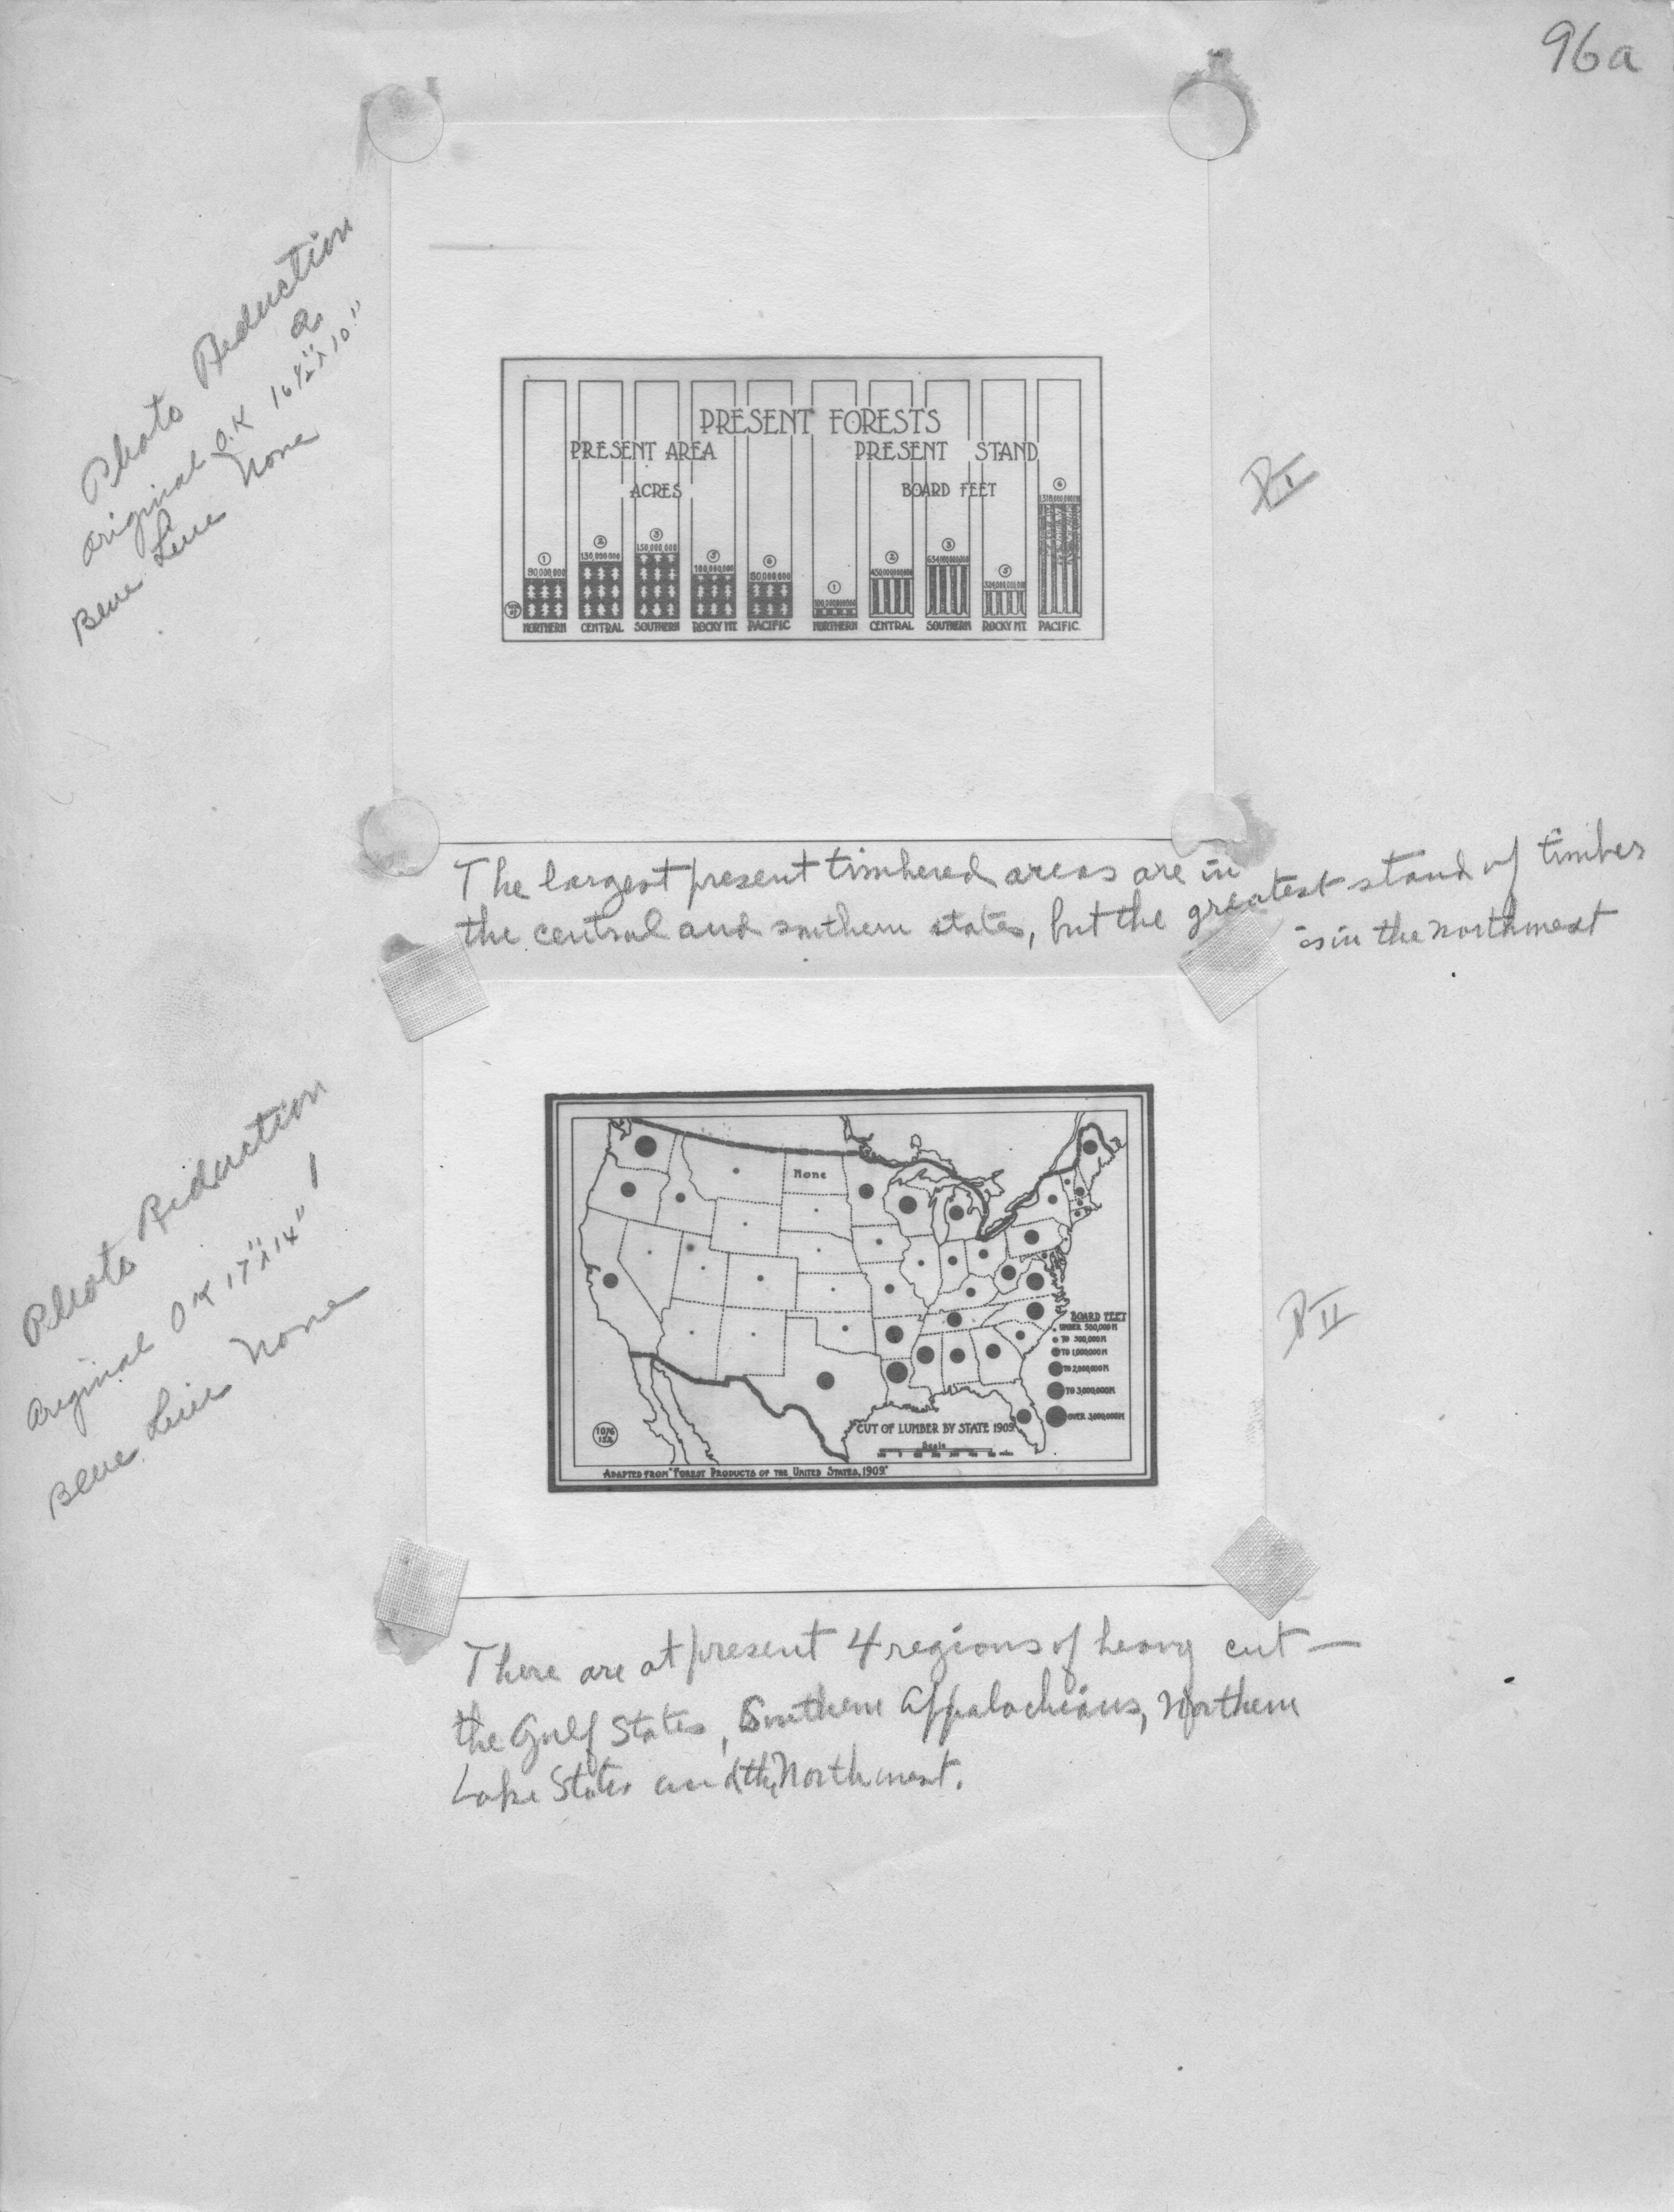 96a
Photo Reduction
a
Original O.K 16½"x10"
Blue Line None
PRESENT FORESTS
PRESENT AREA PRESENT STAND
ACRES BOARD FEET
① ② ③ ⑤ ⑥ ① ② ③ ⑤ ⑥
90,000,000 130,000,000 150,000,000 100,000,000 80,000,000
NORTHERN CENTRAL SOUTHERN ROCKY MT. PACIFIC NORTHERN CENTRAL SOUTHERN ROCKY MT. PACIFIC.
P I
The largest present timbered areas are in
the central and southern states, but the greatest stand of timber
is in the northwest
Photo Reduction
Original OK 17"x14"
Blue Line None
None
BOARD FEET
UNDER 500,000 M
TO 1,000,000 M
TO 2,000,000 M
TO 3,000,000 M
OVER 3,000,000 M
CUT OF LUMBER BY STATE 1909
Scale
1076
152
ADAPTED FROM "FOREST PRODUCTS OF THE UNITED STATES, 1909."
P II
There are at present 4 regions of heavy cut —
the Gulf States, Southern Appalachians, Northern
Lake States and the Northwest.